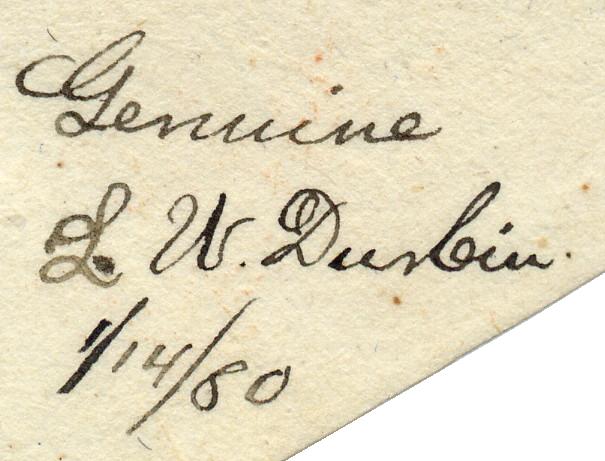 Genuine
L. W. Durbin.
1/14/80